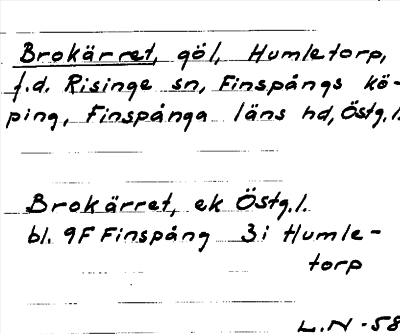 Brokärret, göl, Humletorp,
f.d. Risinge sn, Finspångs kö-
ping, Finspånga läns hd, Östg.l.
Brokärret, ek Östg.l.
bl. 9F Finspång 3i Humle-
torp
L.N-58